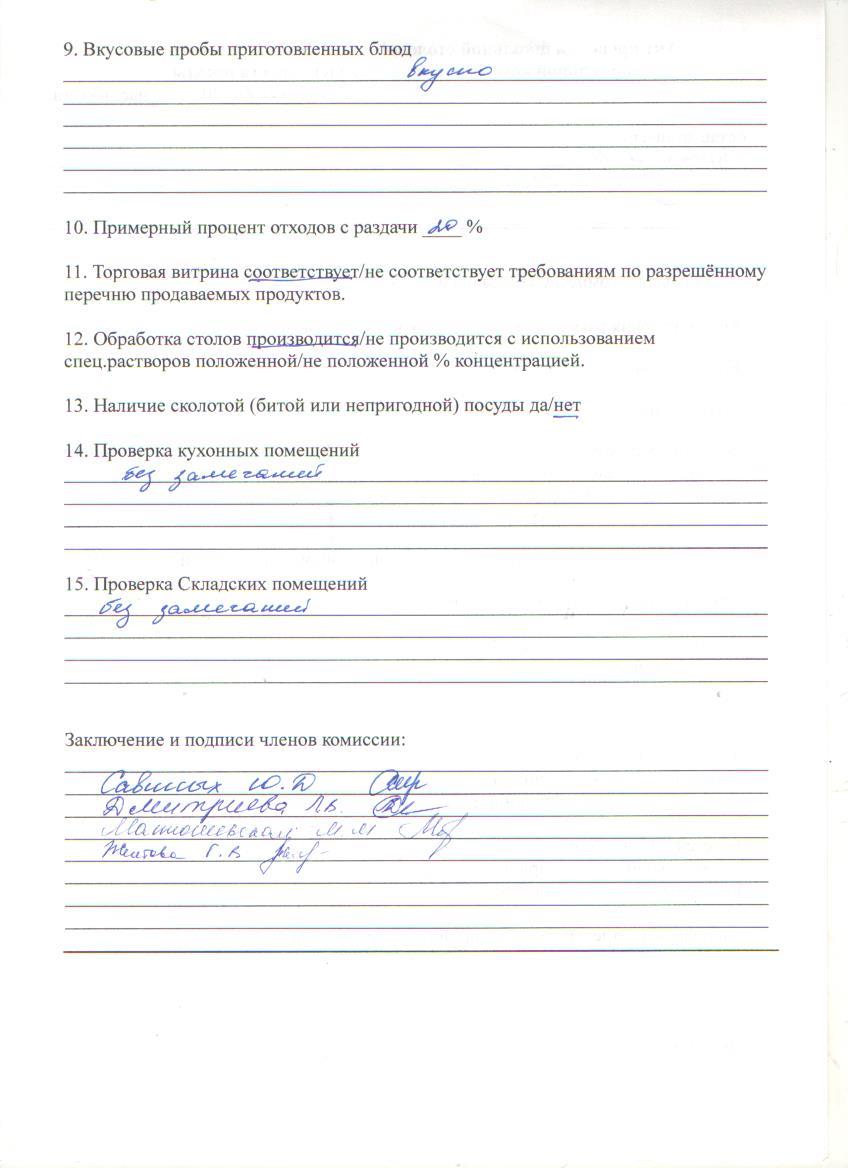 9. Вкусовые пробы приготовленных блюд
вкусно
10. Примерный процент отходов с раздачи 20 %
11. Торговая витрина соответствует/не соответствует требованиям по разрешённому
перечню продаваемых продуктов.
12. Обработка столов производится/не производится с использованием
спец.растворов положенной/не положенной % концентрацией.
13. Наличие сколотой (битой или непригодной) посуды да/нет
14. Проверка кухонных помещений
без замечаний
15. Проверка Складских помещений
без замечаний
Заключение и подписи членов комиссии:
Савиных Ю.Д
Дмитриева Л.В.
М.М
Г.В